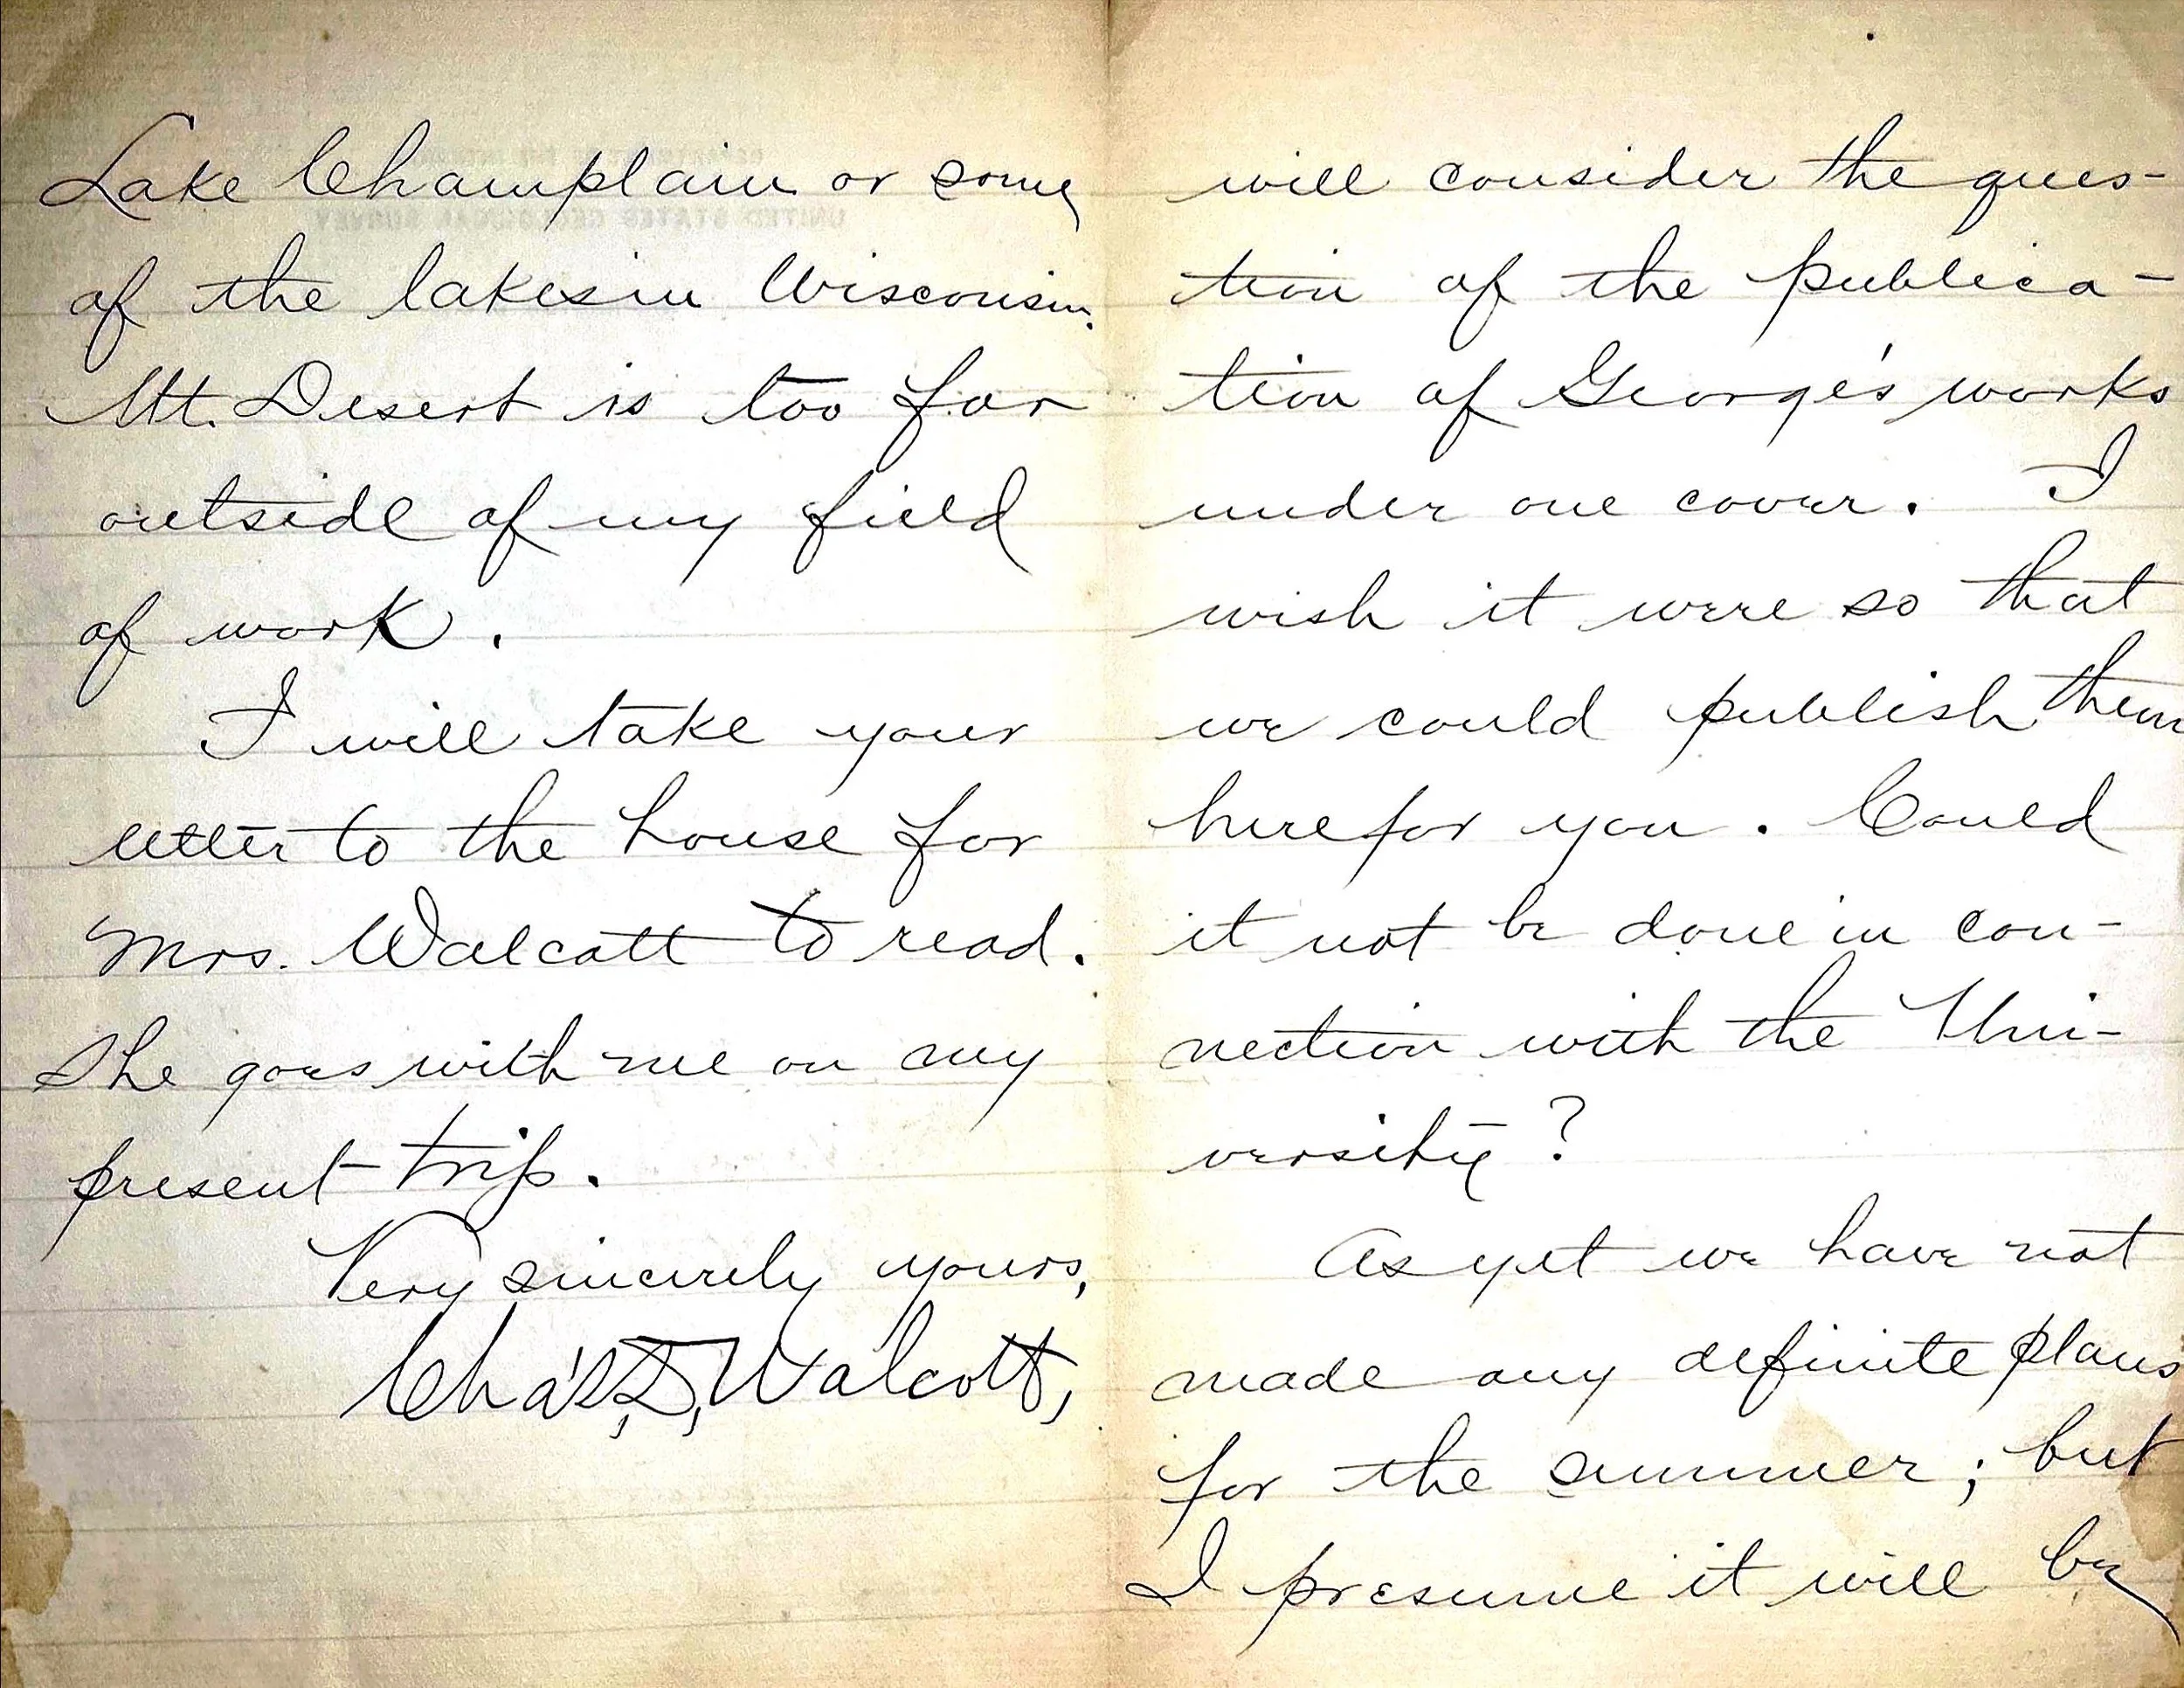 Lake Champlain or some
of the lakes in Wisconsin.
Mt. Desert is too far
outside of my field
of work.
I will take your
letter to the house for
Mrs. Walcott to read.
She goes with me on my
present trip.
Very sincerely yours,
Cha's D. Walcott,
will consider the ques-
tion of the publica-
tion of George's works
under one cover. I
wish it were so that
we could publish them
here for you. Could
it not be done in con-
nection with the Uni-
versity?
As yet we have not
made any definite plans
for the summer; but
I presume it will be